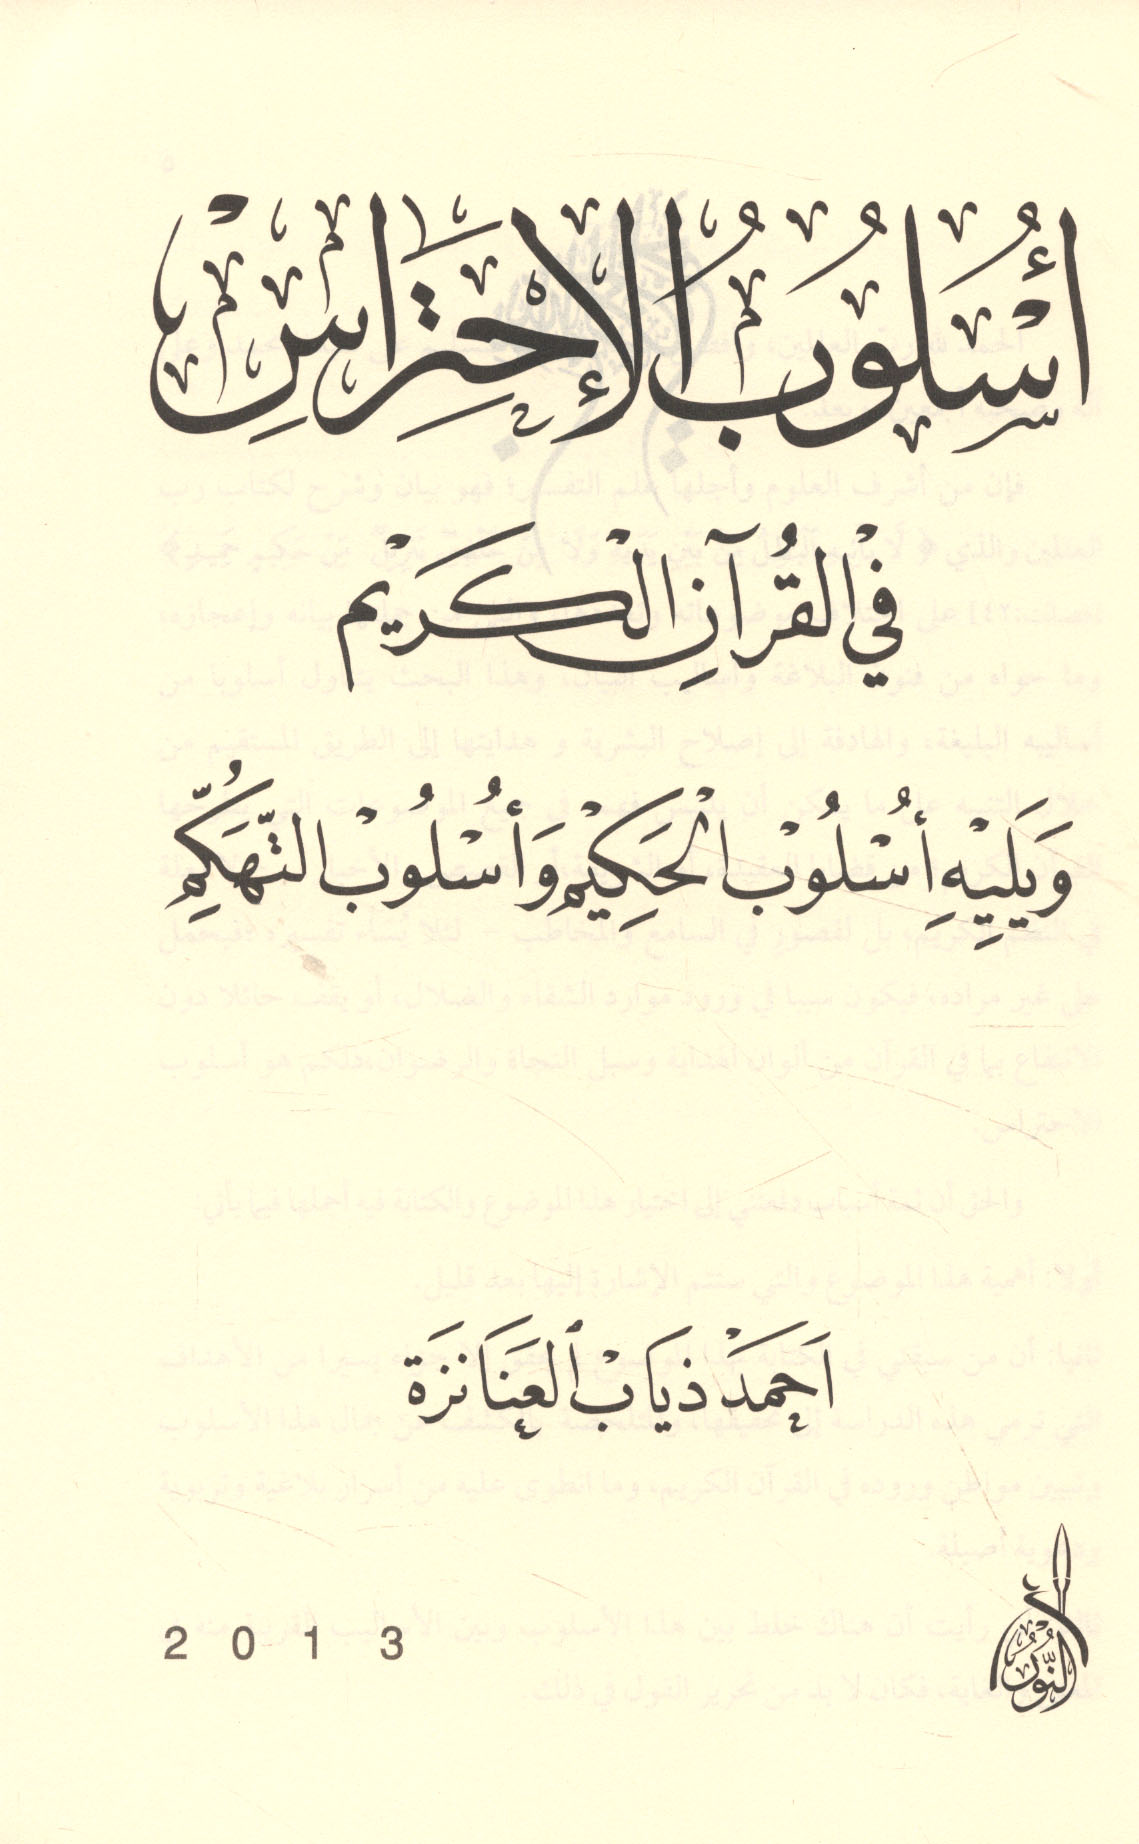 أُسْلُوبُ الإِحْتِرَاسِ
في القُرآنِ الْكَريْم
وَيَلِيْهِ أُسْلُوْبْ الحَكِيْمِ وَأُسْلُوبْ التَّهَكُّمِ
أَحْمَدْ ذيَابْ العَنَانَزَة
2013
النُّورُ